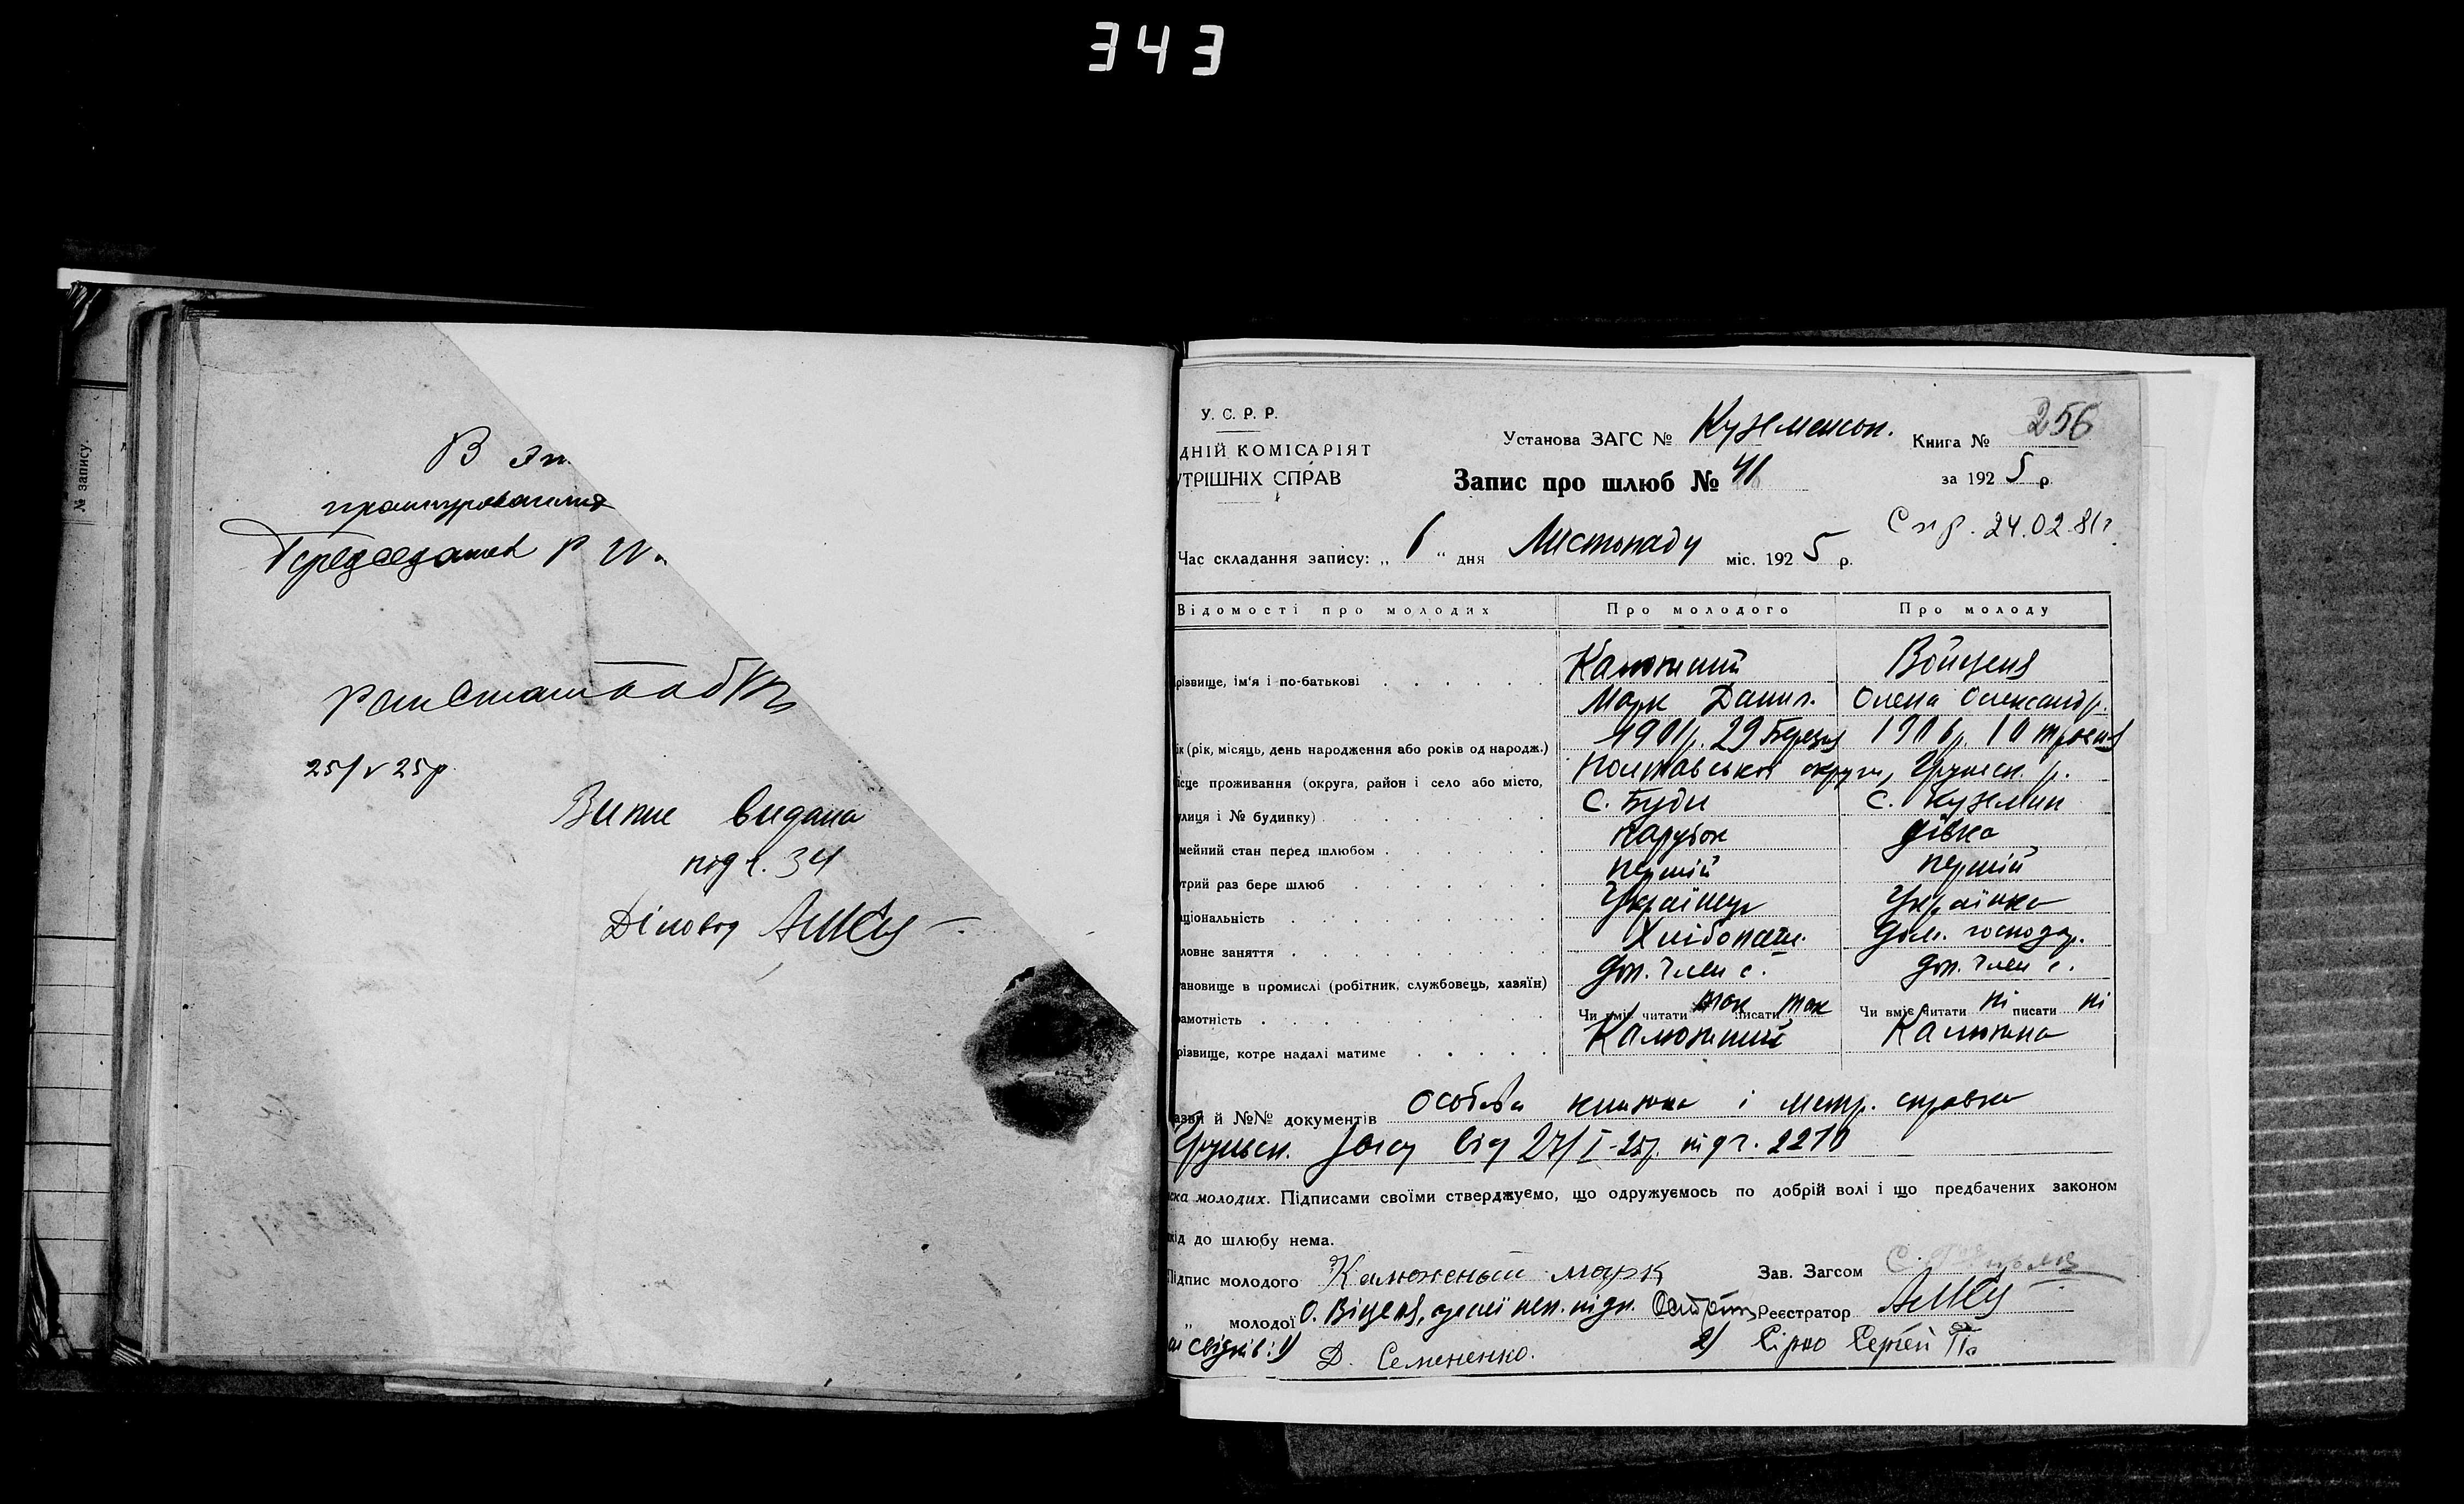 343
№ запису.
В
Председател Р
25/V 25р
Випис видана
під ч. 34
Діловод
У. С. Р. Р.
ДНІЙ КОМІСАРІЯТ
УТРІШНІХ СПРАВ
Установа ЗАГС №
Книга № 256
Запис про шлюб № 41
за 1925 р.
Спр. 24.02.81г.
Час складання запису: „ 6 “ дня Листопаду міс. 1925 р.
Відомості про молодих Про молодого Про молоду
різвище, ім'я і по-батькові Калюжний
Марк Данил. Олена Олександр.
ік (рік, місяць, день народження або років од народж.) 1901р. 29 Березня 1906р. 10 травня
ісце проживання (округа, район і село або місто, Полтавської округи, Грунськ. р.
улиця і № будинку) с. Буди с. Куземин
мейний стан перед шлюбом парубок дівка
трий раз бере шлюб перший перший
аціональність Українець Українка
ловне заняття Хлібопаш. Дом. господар.
ановище в промислі (робітник, службовець, хазяїн) Доп. член с. доп. член с.
рамотність Чи вміє читати так писати так Чи вміє читати ні писати ні
різвище, котре надалі матиме Калюжний Калюжна
азви й №№ документів Особова книжка і метр. справка
Грунськ. Загсу від 27/I-25р. під ч. 2210
ска молодих. Підписами своїми стверджуємо, що одружуємось по добрій волі і що предбачених законом
кід до шлюбу нема.
Підпис молодого Калюженый Марк Зав. Загсом
„ молодої О. Віценя, Реєстратор
свідків: 1) Д. Семененко. 2) Сірко Сергей П.